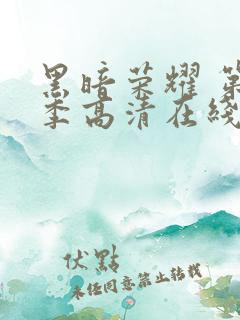 黑暗荣耀 第
季高清在线
伏點
未经同意禁止转载